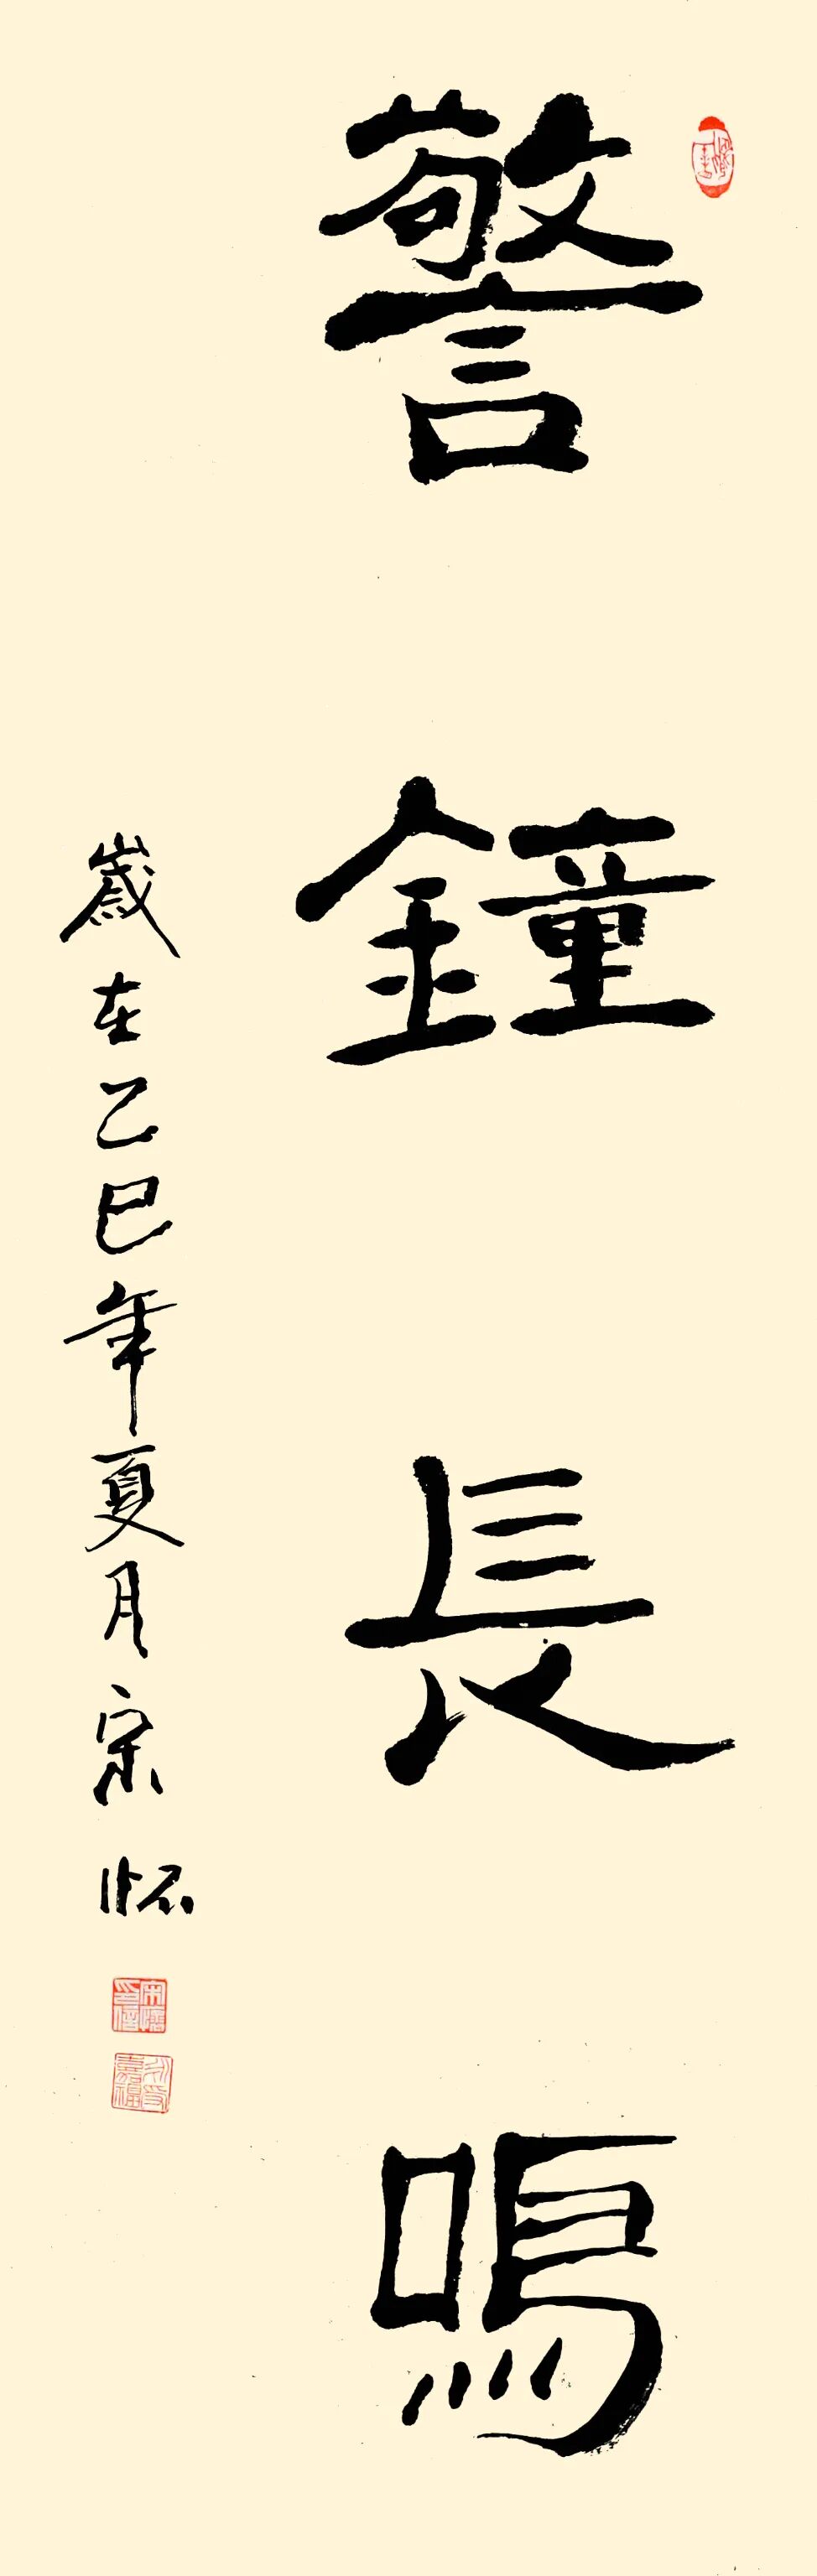 警鐘長鳴
歲在乙巳年夏月宗怀